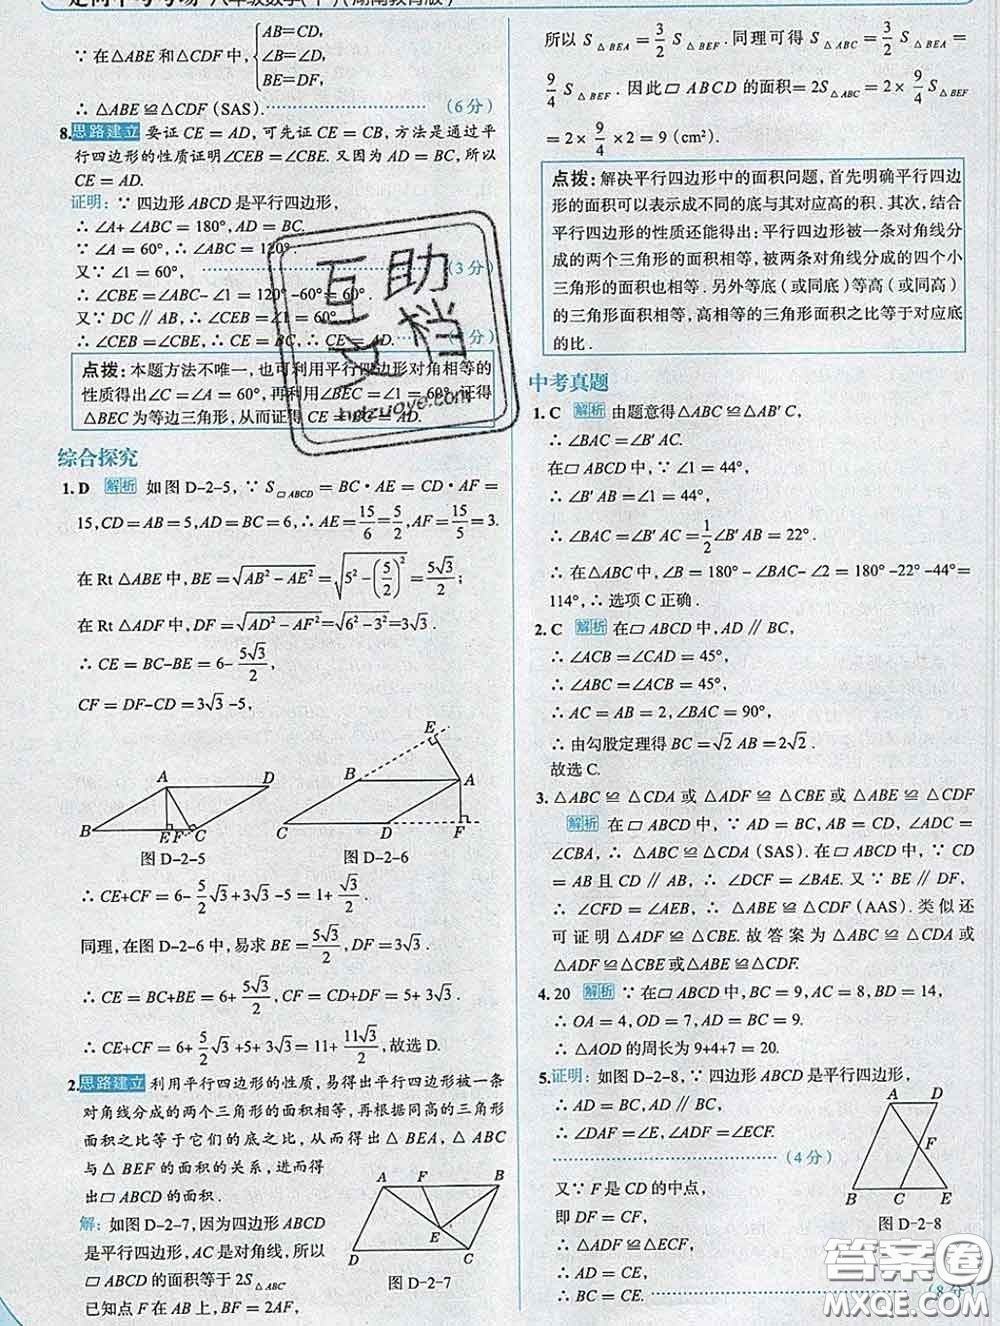 ∵ 在△ABE 和△CDF 中, { AB=CD, ∠B=∠D, BE=DF,
∴ △ABE ≌△CDF (SAS). (6分)
8. 思路建立 要证 CE = AD, 可先证 CE = CB, 方法是通过平
行四边形的性质证明∠CEB =∠CBE. 又因为 AD = BC, 所以
CE = AD.
证明: ∵ 四边形 ABCD 是平行四边形,
∴ ∠A+ ∠ABC = 180°, AD = BC.
∵ ∠A = 60°, ∴ ∠ABC = 120°.
又∵ ∠1 = 60°, (3分)
∴ ∠CBE =∠ABC- ∠1 = 120° -60° = 60°.
又∵ DC // AB, ∴ ∠CEB =∠1 = 60°.
∴ ∠CEB =∠CBE, ∴ CE = BC, ∴ CE = AD. 分)
点拨: 本题方法不唯一, 也可利用平行四边形对角相等的
性质得出∠C = ∠A = 60°, 再利用∠BEC =∠1 = 60°, 证得
△BEC 为等边三角形, 从而证得 CE = BC = AD.
综合探究
1. D 解析 如图 D-2-5, ∵ S▱ABCD = BC·AE = CD·AF =
15, CD = AB = 5, AD = BC = 6, ∴ AE = 15/6 = 5/2, AF = 15/5 = 3.
在 Rt △ABE 中, BE = √(AB² - AE²) = √(5² - (5/2)²) = 5√3/2;
在 Rt △ADF 中, DF = √(AD² - AF²) = √(6² - 3²) = 3√3.
∴ CE = BC-BE = 6- 5√3/2,
CF = DF-CD = 3√3 -5,
A D B E F C
图 D-2-5
E B A C D F
图 D-2-6
∴ CE+CF = 6- 5/2 √3 +3√3 -5 = 1+ √3/2.
同理, 在图 D-2-6 中, 易求 BE = 5√3/2, DF = 3√3.
∴ CE = BC+BE = 6+ 5√3/2, CF = CD+DF = 5+ 3√3.
∴ CE+CF = 6+ 5/2 √3 +5+ 3√3 = 11+ 11√3/2, 故选 D.
2. 思路建立 利用平行四边形的性质, 易得出平行四边形被一条
对角线分成的两个三角形的面积相等, 再根据同高的三角形
面积之比等于它们的底之比, 从而得出 △ BEA, △ ABC
与 △ BEF 的面积的关系, 进而得
出▱ ABCD 的面积.
解: 如图 D-2-7, 因为四边形 ABCD
是平行四边形, AC 是对角线, 所以
▱ ABCD 的面积等于 2S△ABC.
已知点 F 在 AB 上, BF = 2AF,
A F B E D C
图 D-2-7
所以 S△BEA = 3/2 S△BEF. 同理可得 S△ABC = 3/2 S△BEA =
9/4 S△BEF. 因此▱ ABCD 的面积 = 2S△ABC = 2× 9/4 S△BEF
= 2× 9/4 ×2 = 9 (cm²).
点拨: 解决平行四边形中的面积问题, 首先明确平行四边
形的面积可以表示成不同的底与其对应高的积. 其次, 结合
平行四边形的性质还能得出: 平行四边形被一条对角线分
成的两个三角形的面积相等, 被两条对角线分成的四个小
三角形的面积也相等. 另外等底 (或同底) 等高 (或同高)
的三角形面积相等, 高相等的三角形面积之比等于对应底
的比.
中考真题
1. C 解析 由题意得△ABC ≌△AB′C,
∴ ∠BAC =∠B′AC.
在▱ ABCD 中, ∵ ∠1 = 44°,
∴ ∠B′AB =∠1 = 44°,
∴ ∠BAC =∠B′AC = 1/2 ∠B′AB = 22°.
∴ 在△ABC 中, ∠B = 180° - ∠BAC- ∠2 = 180° -22° -44° =
114°, ∴ 选项 C 正确.
2. C 解析 在▱ ABCD 中, AD // BC,
∴ ∠ACB =∠CAD = 45°,
∴ ∠ABC =∠ACB = 45°,
∴ AC = AB = 2, ∠BAC = 90°,
∴ 由勾股定理得 BC = √2 AB = 2√2.
故选 C.
3. △ABC ≌ △CDA 或 △ADF ≌ △CBE 或 △ABE ≌ △CDF
解析 在▱ ABCD 中, ∵ AD = BC, AB = CD, ∠ADC =
∠CBA, ∴ △ABC ≌△CDA (SAS). 在▱ ABCD 中, ∵ CD
= AB 且 CD // AB, ∴ ∠DCF =∠BAE. 又 ∵ BE // DF,
∴ ∠CFD =∠AEB, ∴ △ABE ≌△CDF (AAS). 类似还
可证明 △ADF ≌△CBE. 故答案为 △ABC ≌△CDA 或
△ADF ≌△CBE 或△ABE ≌△CDF.
4. 20 解析 ∵ 在▱ ABCD 中, BC = 9, AC = 8, BD = 14,
∴ OA = 4, OD = 7, AD = BC = 9.
∴ △AOD 的周长为 9+4+7 = 20.
5. 证明: 如图 D-2-8, ∵ 四边形 ABCD 是平行四边形,
∴ AD = BC, AD // BC.
∴ ∠DAF =∠E, ∠ADF =∠ECF.
(4分)
又∵ F 是 CD 的中点,
即 DF = CF,
∴ △ADF ≌△ECF,
∴ AD = CE,
∴ BC = CE. (8分
A D F B C E
图 D-2-8
互助
文档
hdzuoye.com
答案圈
MXQE.COM